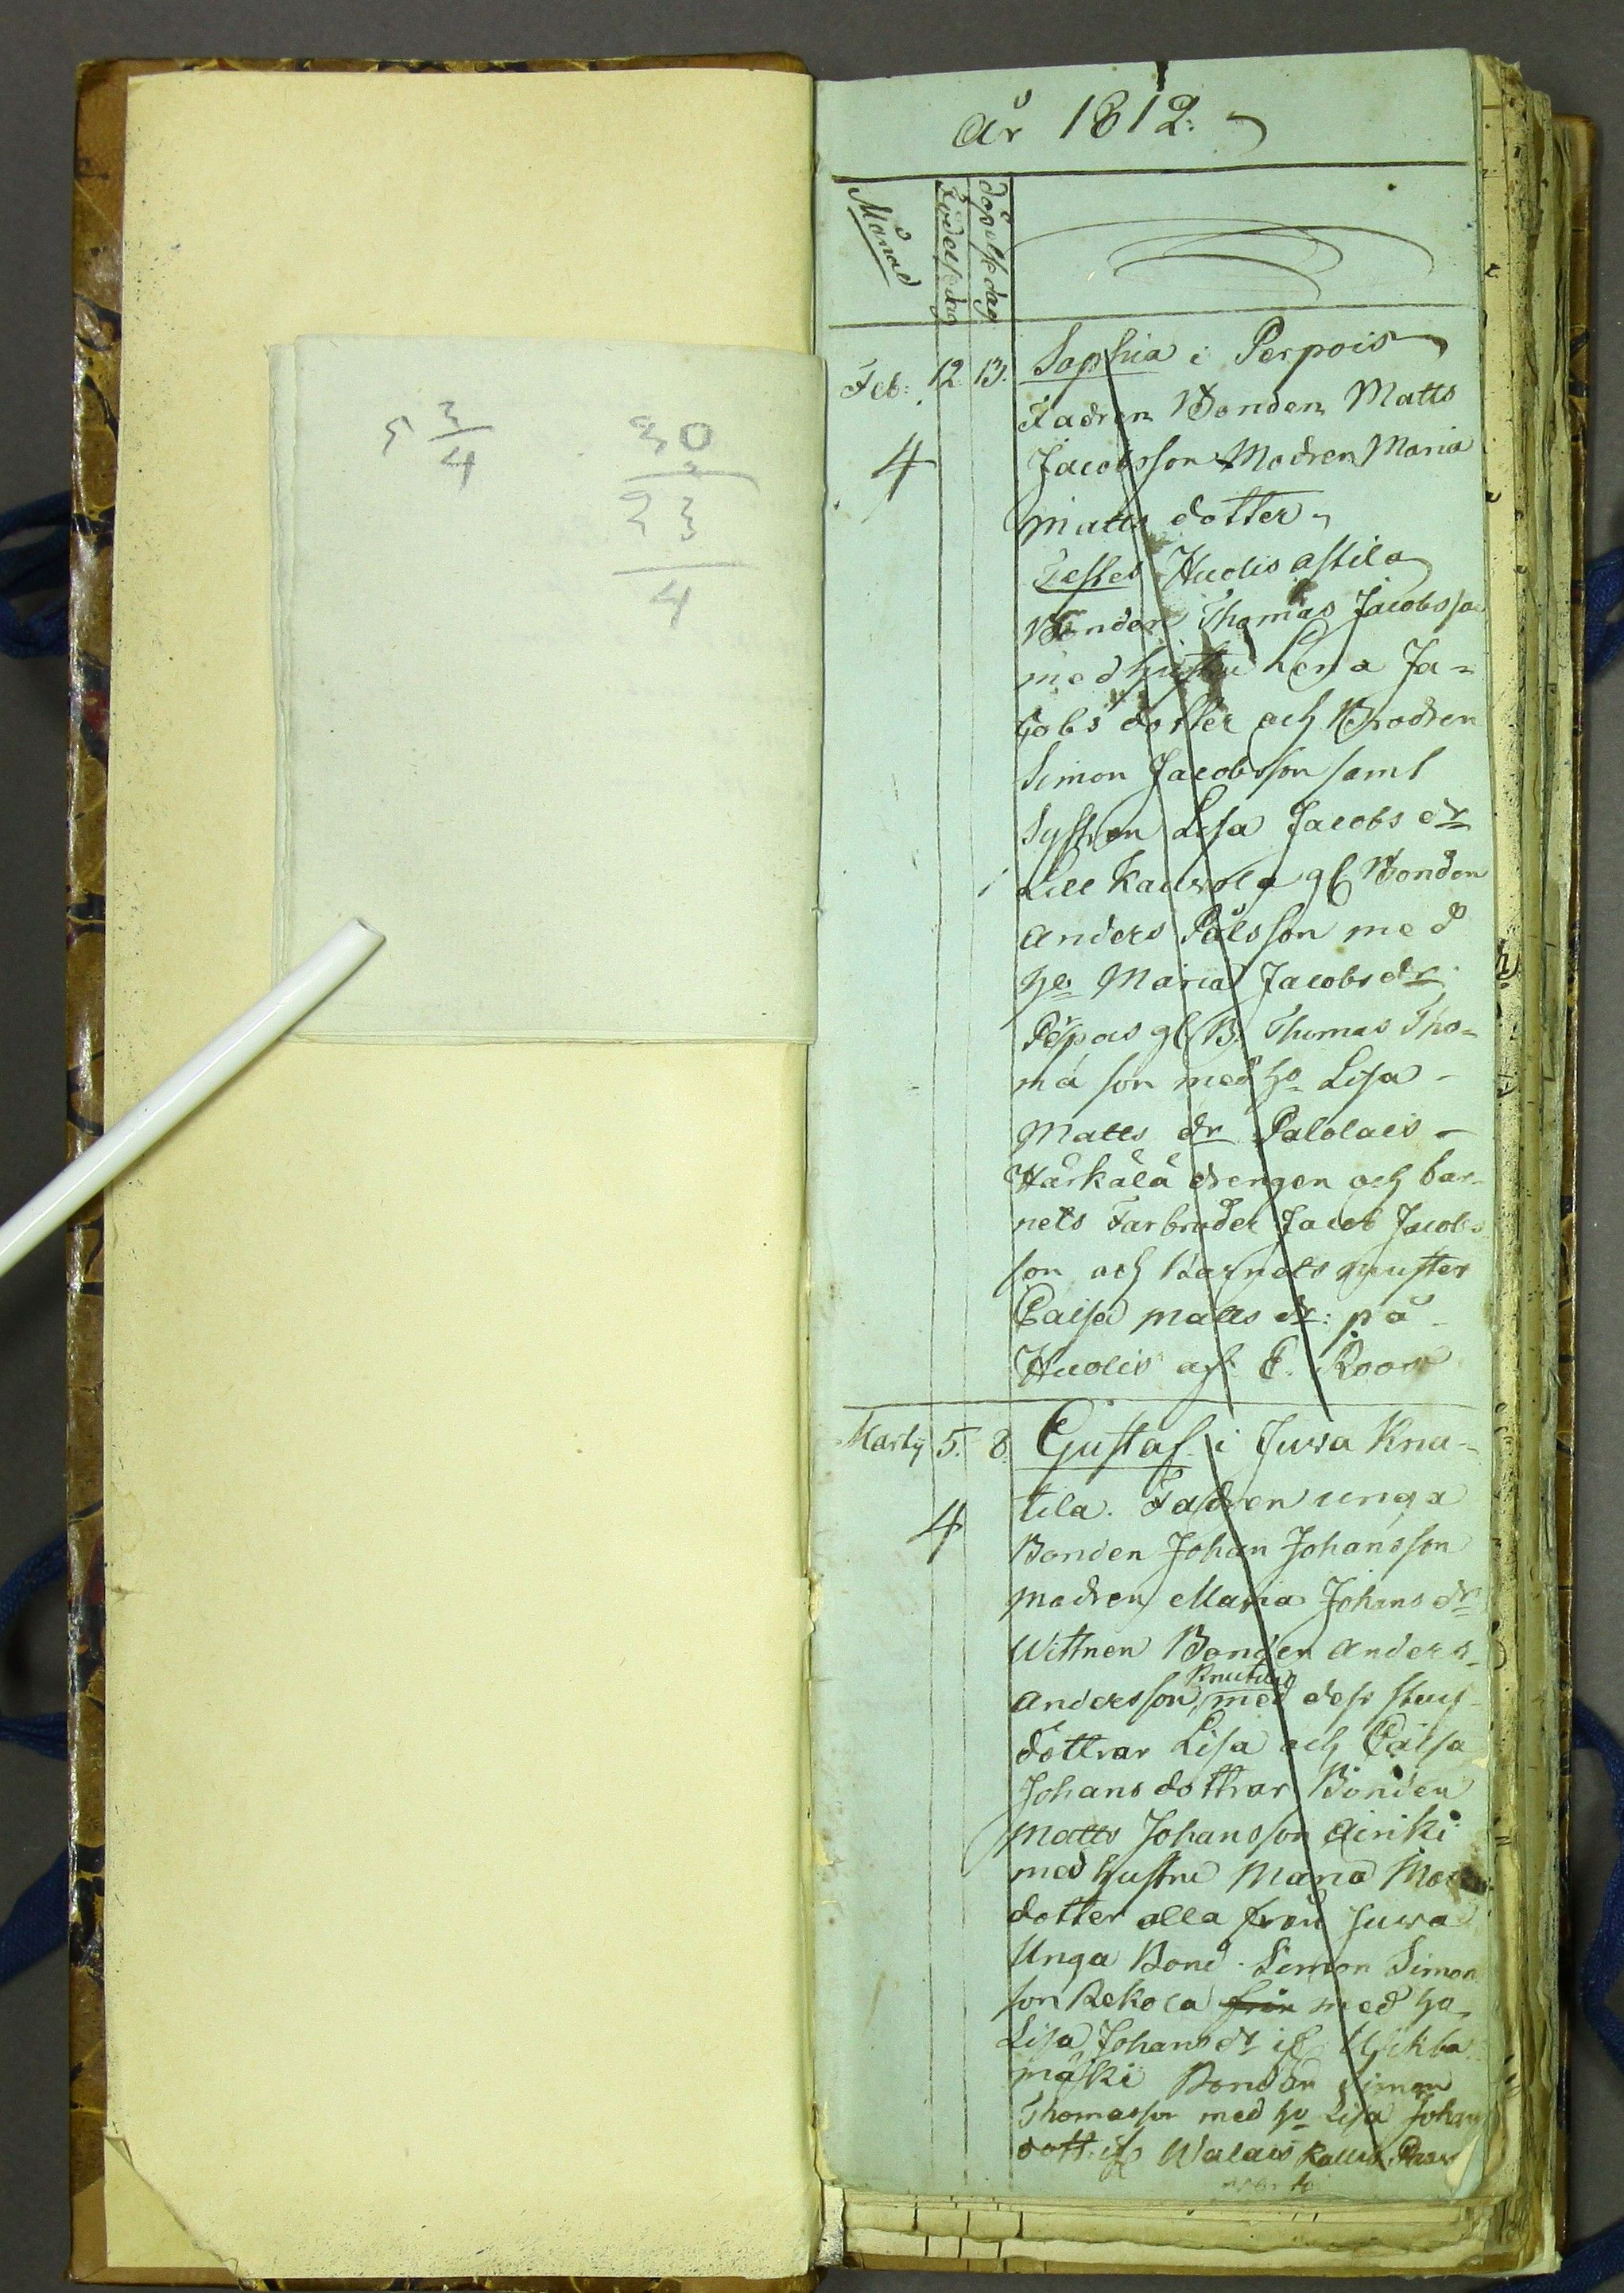 5 3/4
30
23
4
År 1812.
Månad
Födelsedag
döpelsedag
Feb: 12 13. Sophia i Perpois
Fadren Bonden Matts
4 Jacobsson Modren Maria
Matts dotter
Testes Huolis Astila
Bonden Thomas Jacobsson
med hustru Lena Ja=
cobs dotter och Brodren
Simon Jacobsson samt
Systren Lisa Jacobs dr
Lill Kauvola gl Bonden
Anders Pålsson med
ho Maria Jacobs dr
gl B. Thomas Tho=
ma son med ho Lisa
Matts dr Palolais
Härkälä drengen och bar=
nets Farbroder Jacob Jacobs
son och Barnets muster
Caisa Matts dr: på
Huolis af E. Roos
Martij 5. 8. Gustaf i Juva Knu=
tila. Fadren unga
4 Bonden Johan Johansson
modren Maria Johans dr
Wittnen Bonden Anders
Knutila
Andersson med dess stuf
döttrar Lisa och Caisa
Johans döttrar Bonden
Matts Johansson Airiki
med hustru Maria
dotter alla från Juva
Unga Bond. Simon Simon
son Rekola från med ho
Lisa Johans dr if
mäki Bonden Simon
Thomasson med ho Lisa Johans
dott. if Walais